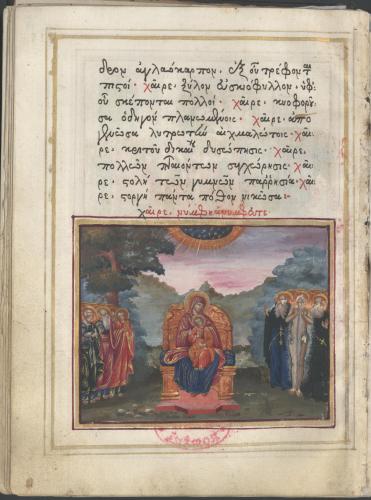 δρον ἀγλαόκαρπον, ἐξ οὗ τρέφονται
πιστοί· χαῖρε, ξύλον εὐσκιόφυλλον, ὑφ'
οὗ σκέπονται πολλοί· χαῖρε, κυοφοροῦ
σα ὁδηγὸν πλανωμένοις· χαῖρε, ἀπο
γεννῶσα λυτρωτὴν αἰχμαλώτοις· χαῖ
ρε, κριτοῦ δικαίου δυσώπησις· χαῖρε,
πολλῶν πταιόντων συγχώρησις· χαῖ
ρε, στολὴ τῶν γυμνῶν παρρησίας· χαῖ
ρε, στοργὴ πάντα πόθον νικῶσα:
χαῖρε, νύμφη ἀνύμφευτε·